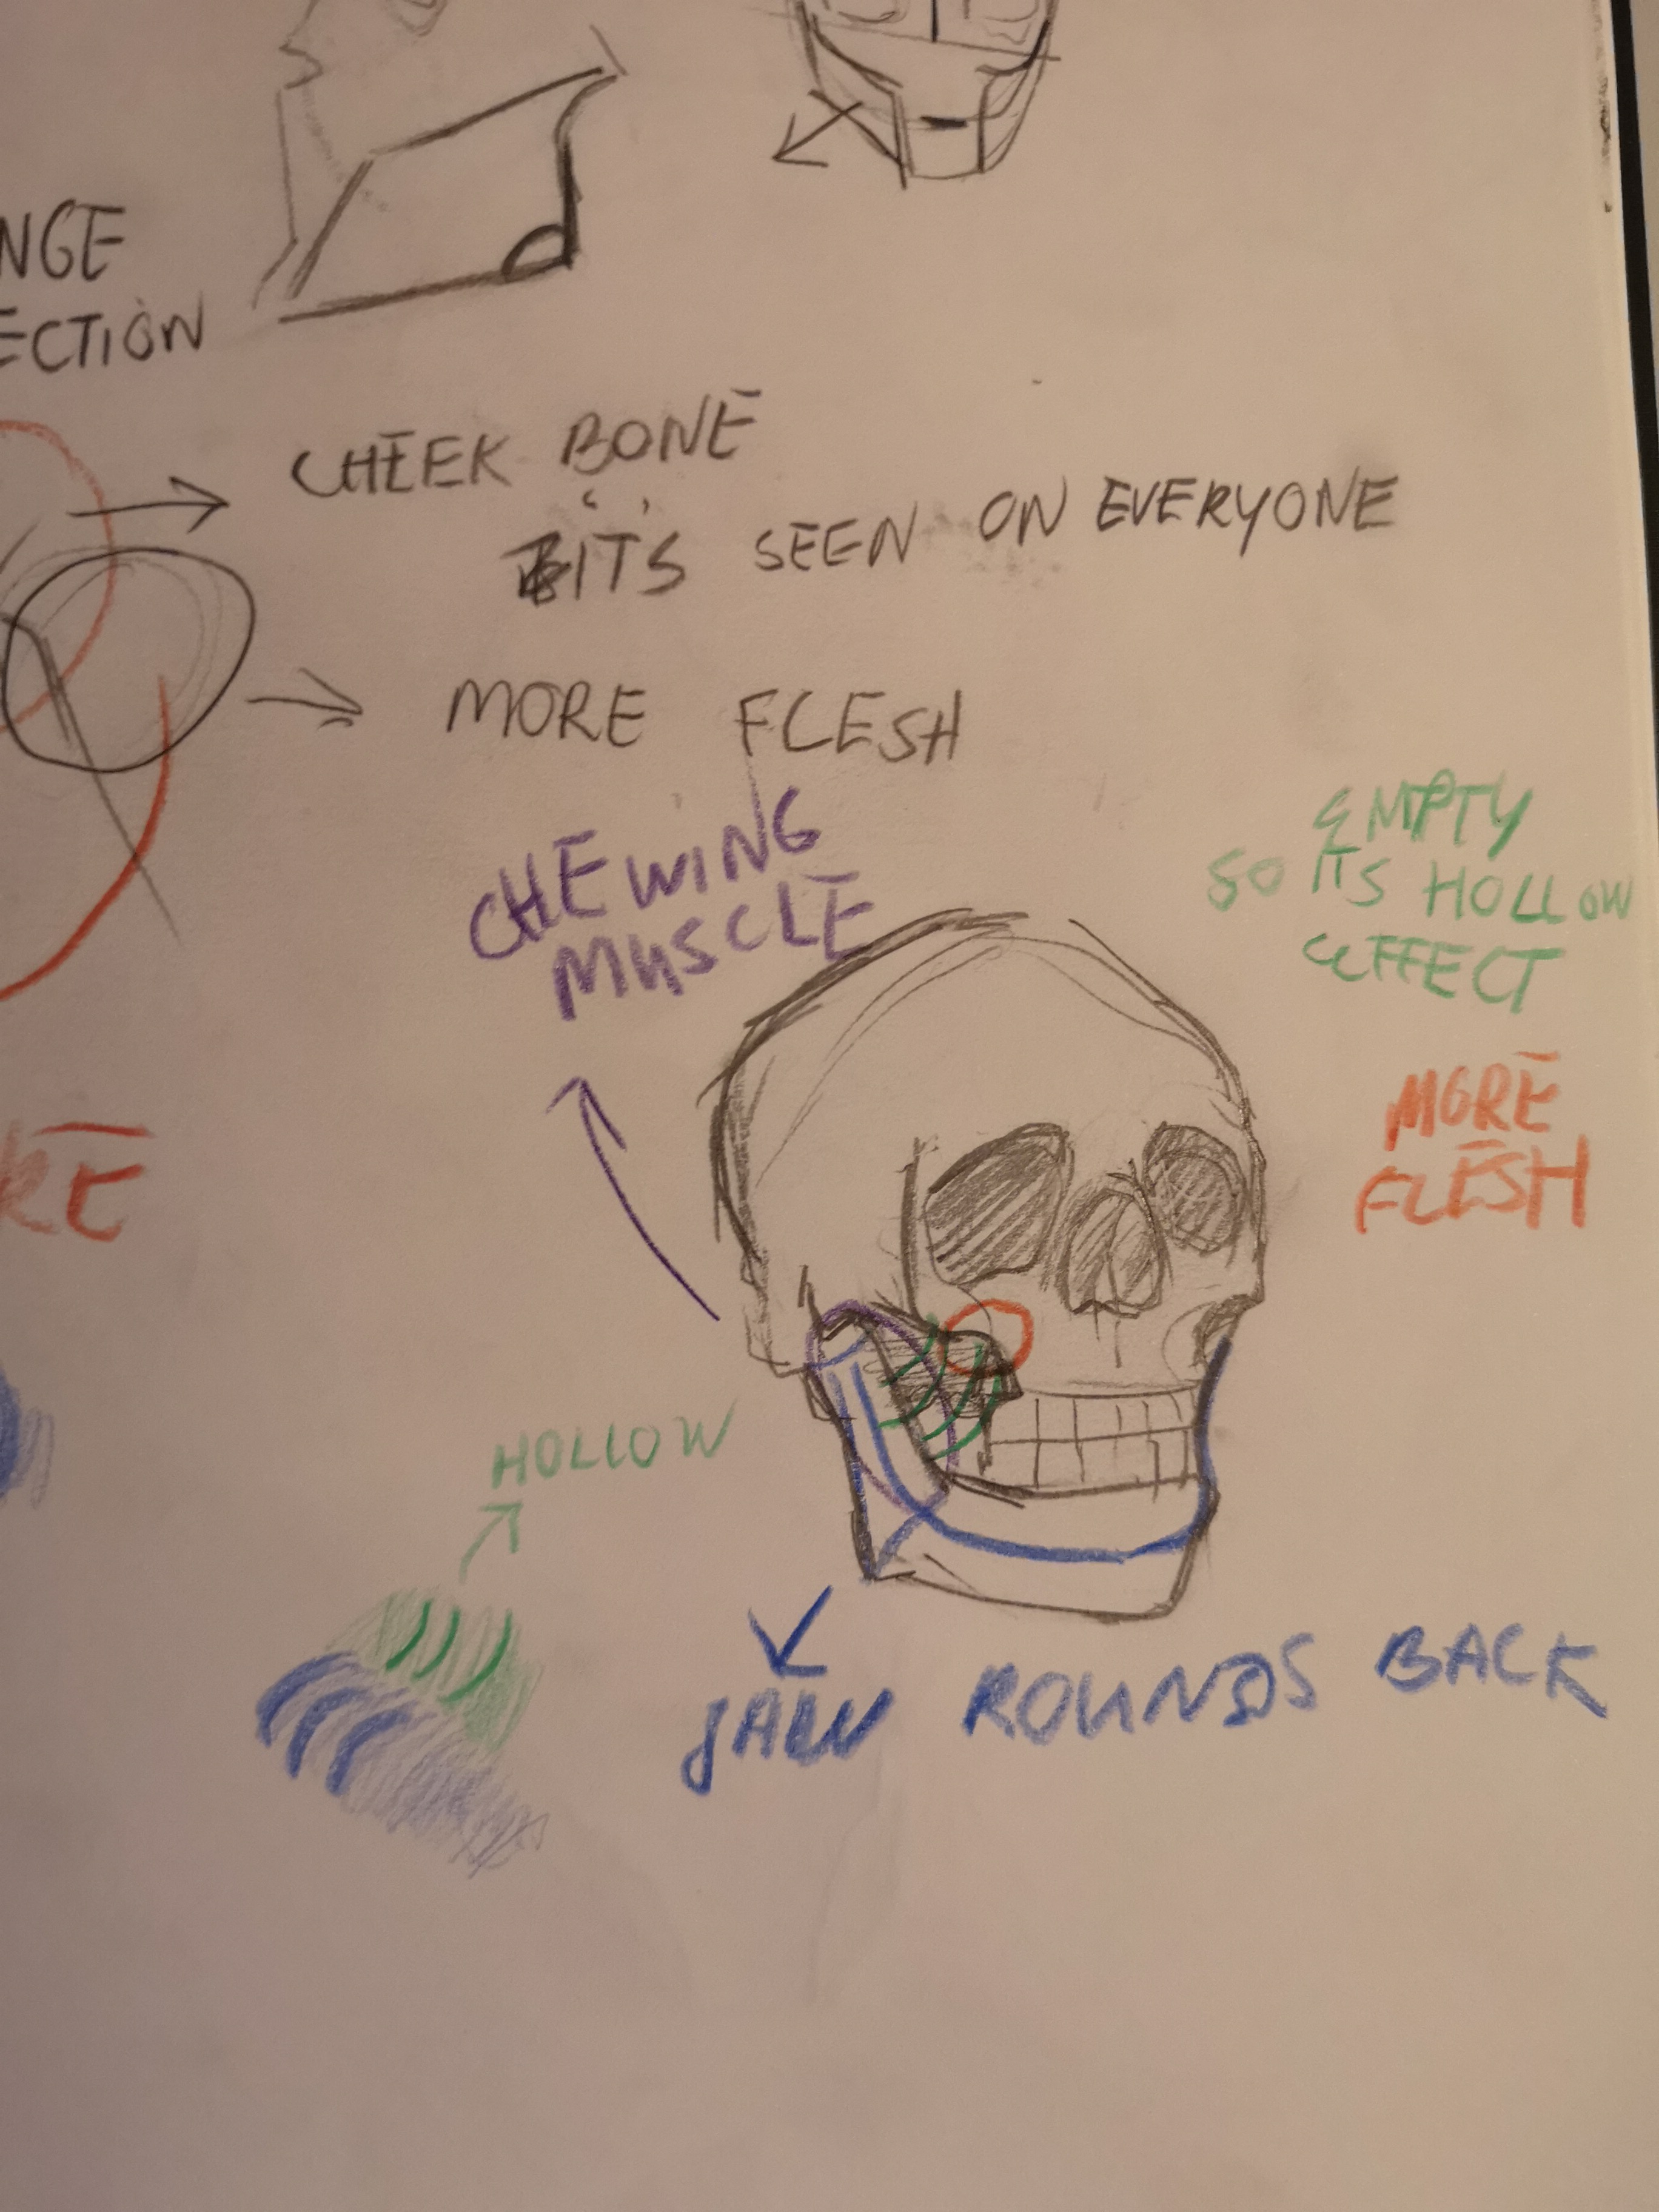 NGE
ECTION
CHEEK BONE
ITS SEEN ON EVERYONE
MORE FLESH
CHEWING
MUSCLE
EMPTY
SO ITS HOLLOW
EFFECT
MORE
FLESH
RE
HOLLOW
JAW ROUNDS BACK